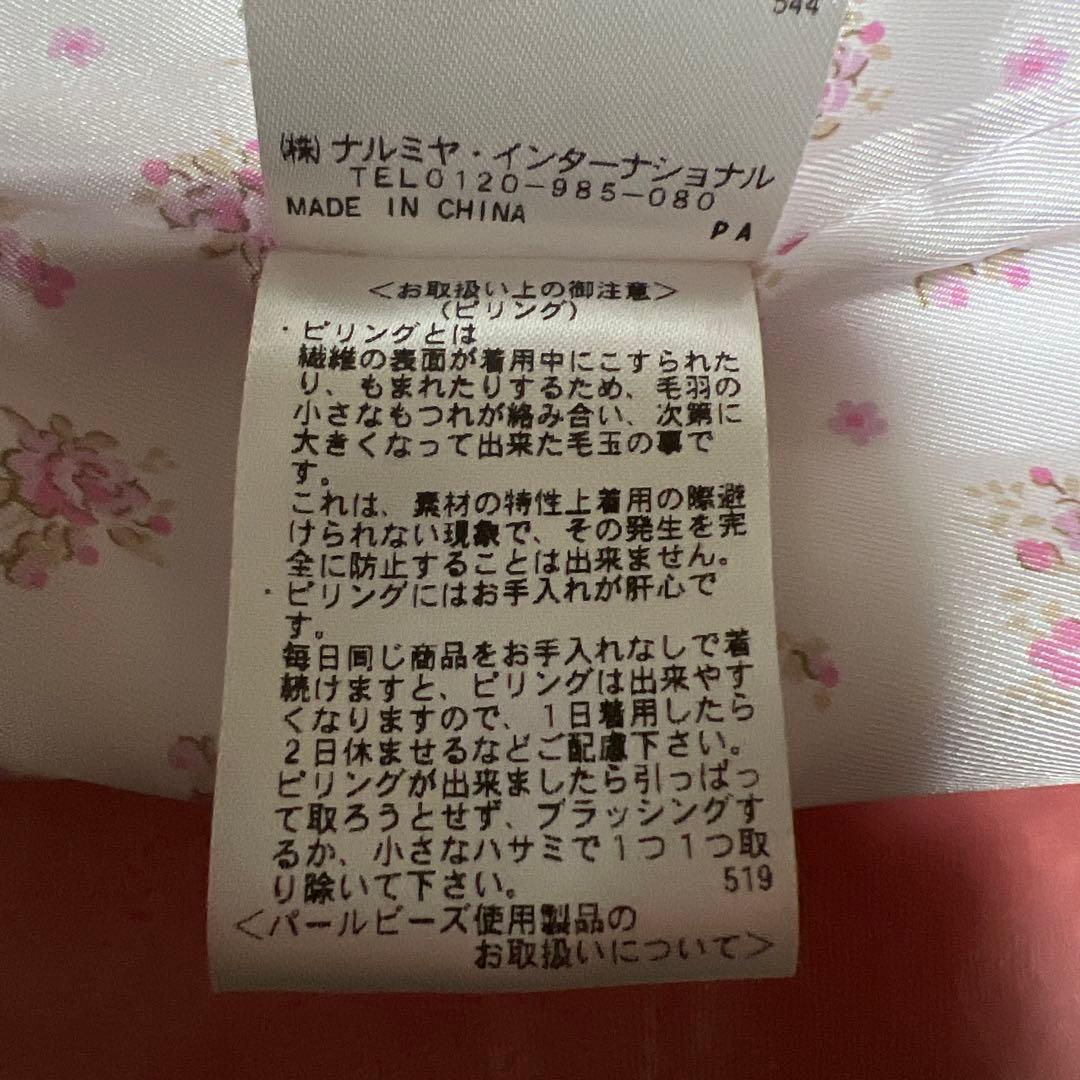 544
(株)ナルミヤ・インターナショナル
TEL0120-985-080
MADE IN CHINA
PA
<お取扱い上の御注意>
(ピリング)
・ピリングとは
繊維の表面が着用中にこすられた
り、もまれたりするため、毛羽の
小さなもつれが絡み合い、次第に
大きくなって出来た毛玉の事で
す。
これは、素材の特性上着用の際避
けられない現象で、その発生を完
全に防止することは出来ません。
・ピリングにはお手入れが肝心で
す。
毎日同じ商品をお手入れなしで着
続けますと、ピリングは出来やす
くなりますので、1日着用したら
2日休ませるなどご配慮下さい。
ピリングが出来ましたら引っぱっ
て取ろうとせず、ブラッシングす
るか、小さなハサミで1つ1つ取
り除いて下さい。
519
<パールビーズ使用製品の
お取扱いについて>